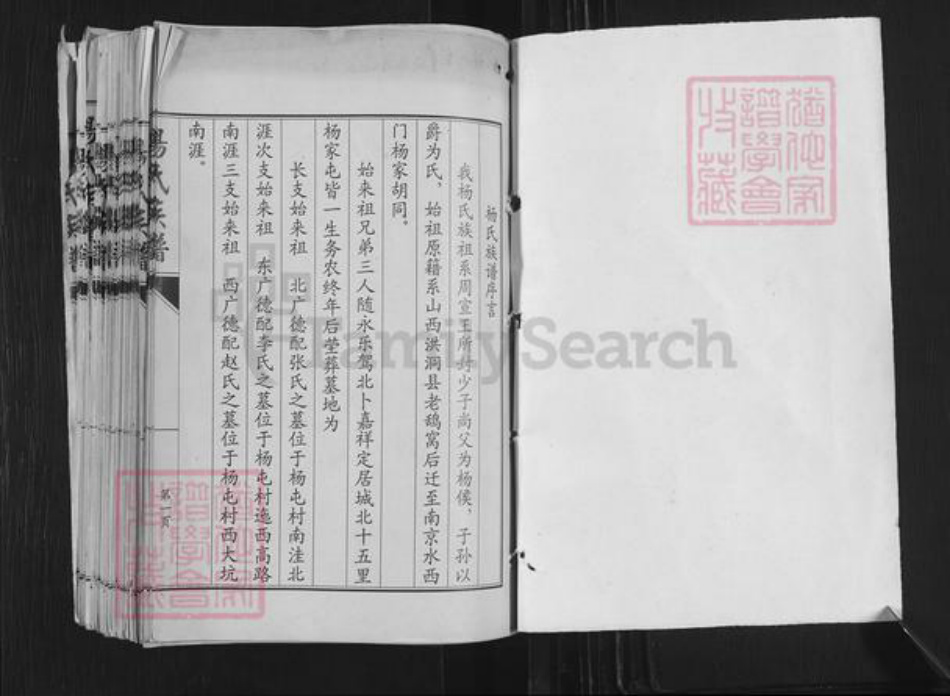 杨氏族谱序言
我杨氏族祖系周宣王所封少子尚父为杨侯，子孙以
爵为氏，始祖原籍系山西洪洞县老鸹窝后迁至南京水西
门杨家胡同。
始来祖兄弟三人随永乐驾北卜嘉祥定居城北十五里
杨家屯皆一生务农终年后茔葬墓地为
长支始来祖 北广德配张氏之墓位于杨屯村南洼北
涯次支始来祖 东广德配李氏之墓位于杨屯村迤西高路
南涯三支始来祖 西广德配赵氏之墓位于杨屯村西大坑
南涯。
杨氏族谱
第一页
猶他家
譜學會
收藏
FamilySearch